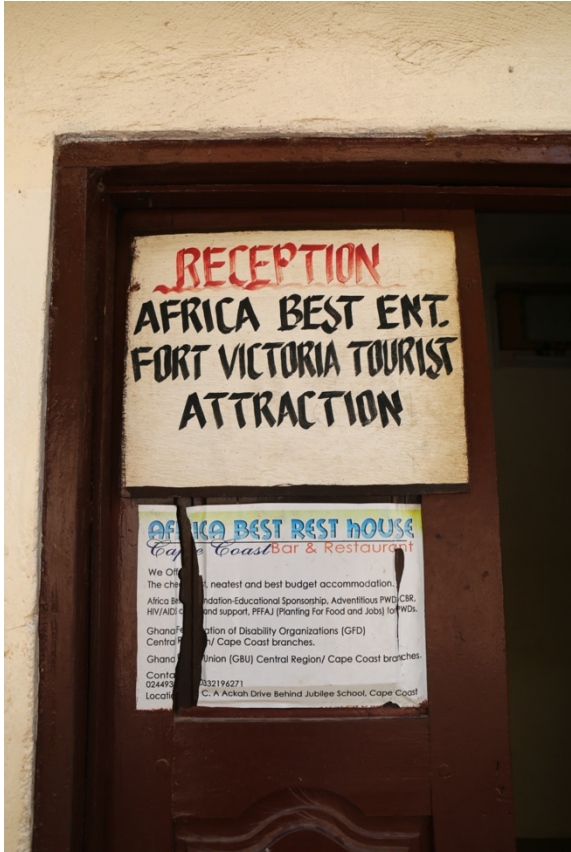 RECEPTION
AFRICA BEST ENT.
FORT VICTORIA TOURIST
ATTRACTION
AFRICA BEST REST hOUSE
Cape Coast Bar & Restaurant
We
The neatest and best budget accommodation.
Africa -Educational Sponsorship, Adventitious PWD, CBR,
HIV/AID and support, PFFAJ (Planting For Food and Jobs) for PWDs.
Ghana of Disability Organizations (GFD)
Central / Cape Coast branches.
Ghana Union (GBU) Central Region/ Cape Coast branches.
Conta
C. A Ackah Drive Behind Jubilee School, Cape Coast